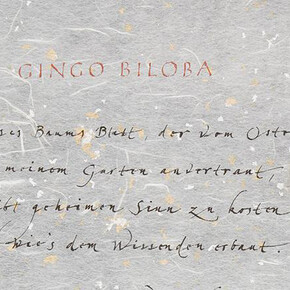 GINGO BILOBA
ses Baums Blatt, der vom Osto
meinem Garten anvertraut,
ibt geheimen Sinn zu kosten
wie's dem Wissenden erbaut.